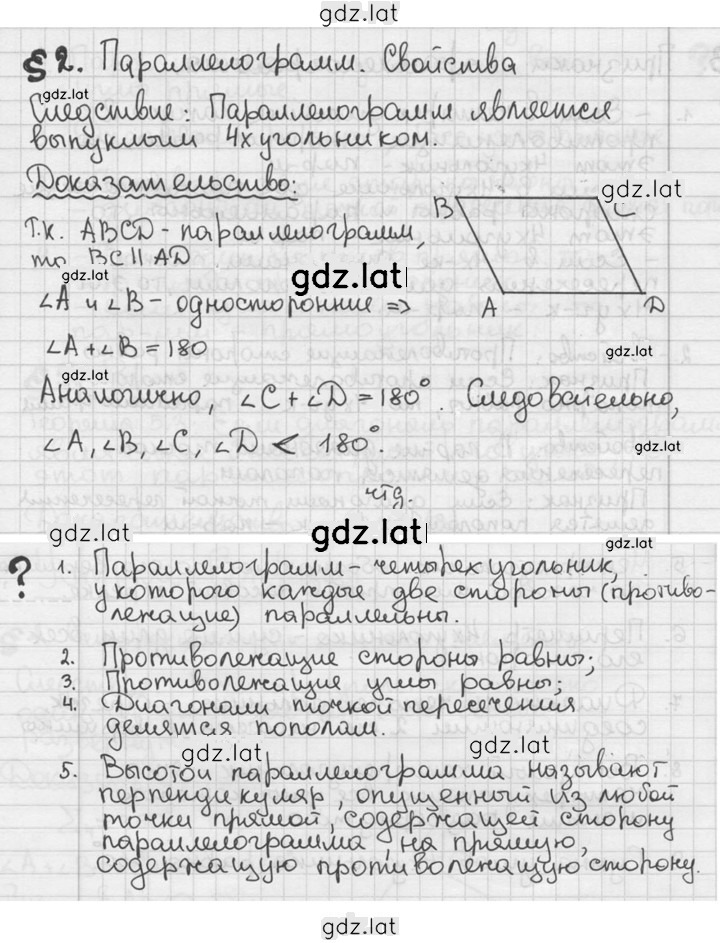 gdz.lat
§ 2. Параллелограмм. Свойства
gdz.lat
Следствие: Параллелограмм является
выпуклым 4х угольником.
Доказательство:
gdz.lat
B
C
Т.к. ABCD - параллелограмм,
то BC || AD
gdz.lat
∠A и ∠B - односторонние =>
A
D
∠A + ∠B = 180
gdz.lat
gdz.lat
Аналогично, ∠C + ∠D = 180°. Следовательно,
∠A, ∠B, ∠C, ∠D < 180°.
gdz.lat
чтд.
gdz.lat
? 1. Параллелограмм - четырехугольник,
у которого каждые две стороны (противо-
лежащие) параллельны.
2. Противолежащие стороны равны;
3. Противолежащие углы равны;
4. Диагонали точкой пересечения
делятся пополам.
gdz.lat
gdz.lat
5. Высотой параллелограмма называют
перпендикуляр, опущенный из любой
точки прямой, содержащей сторону
параллелограмма, на прямую,
содержащую противолежащую сторону.
gdz.lat